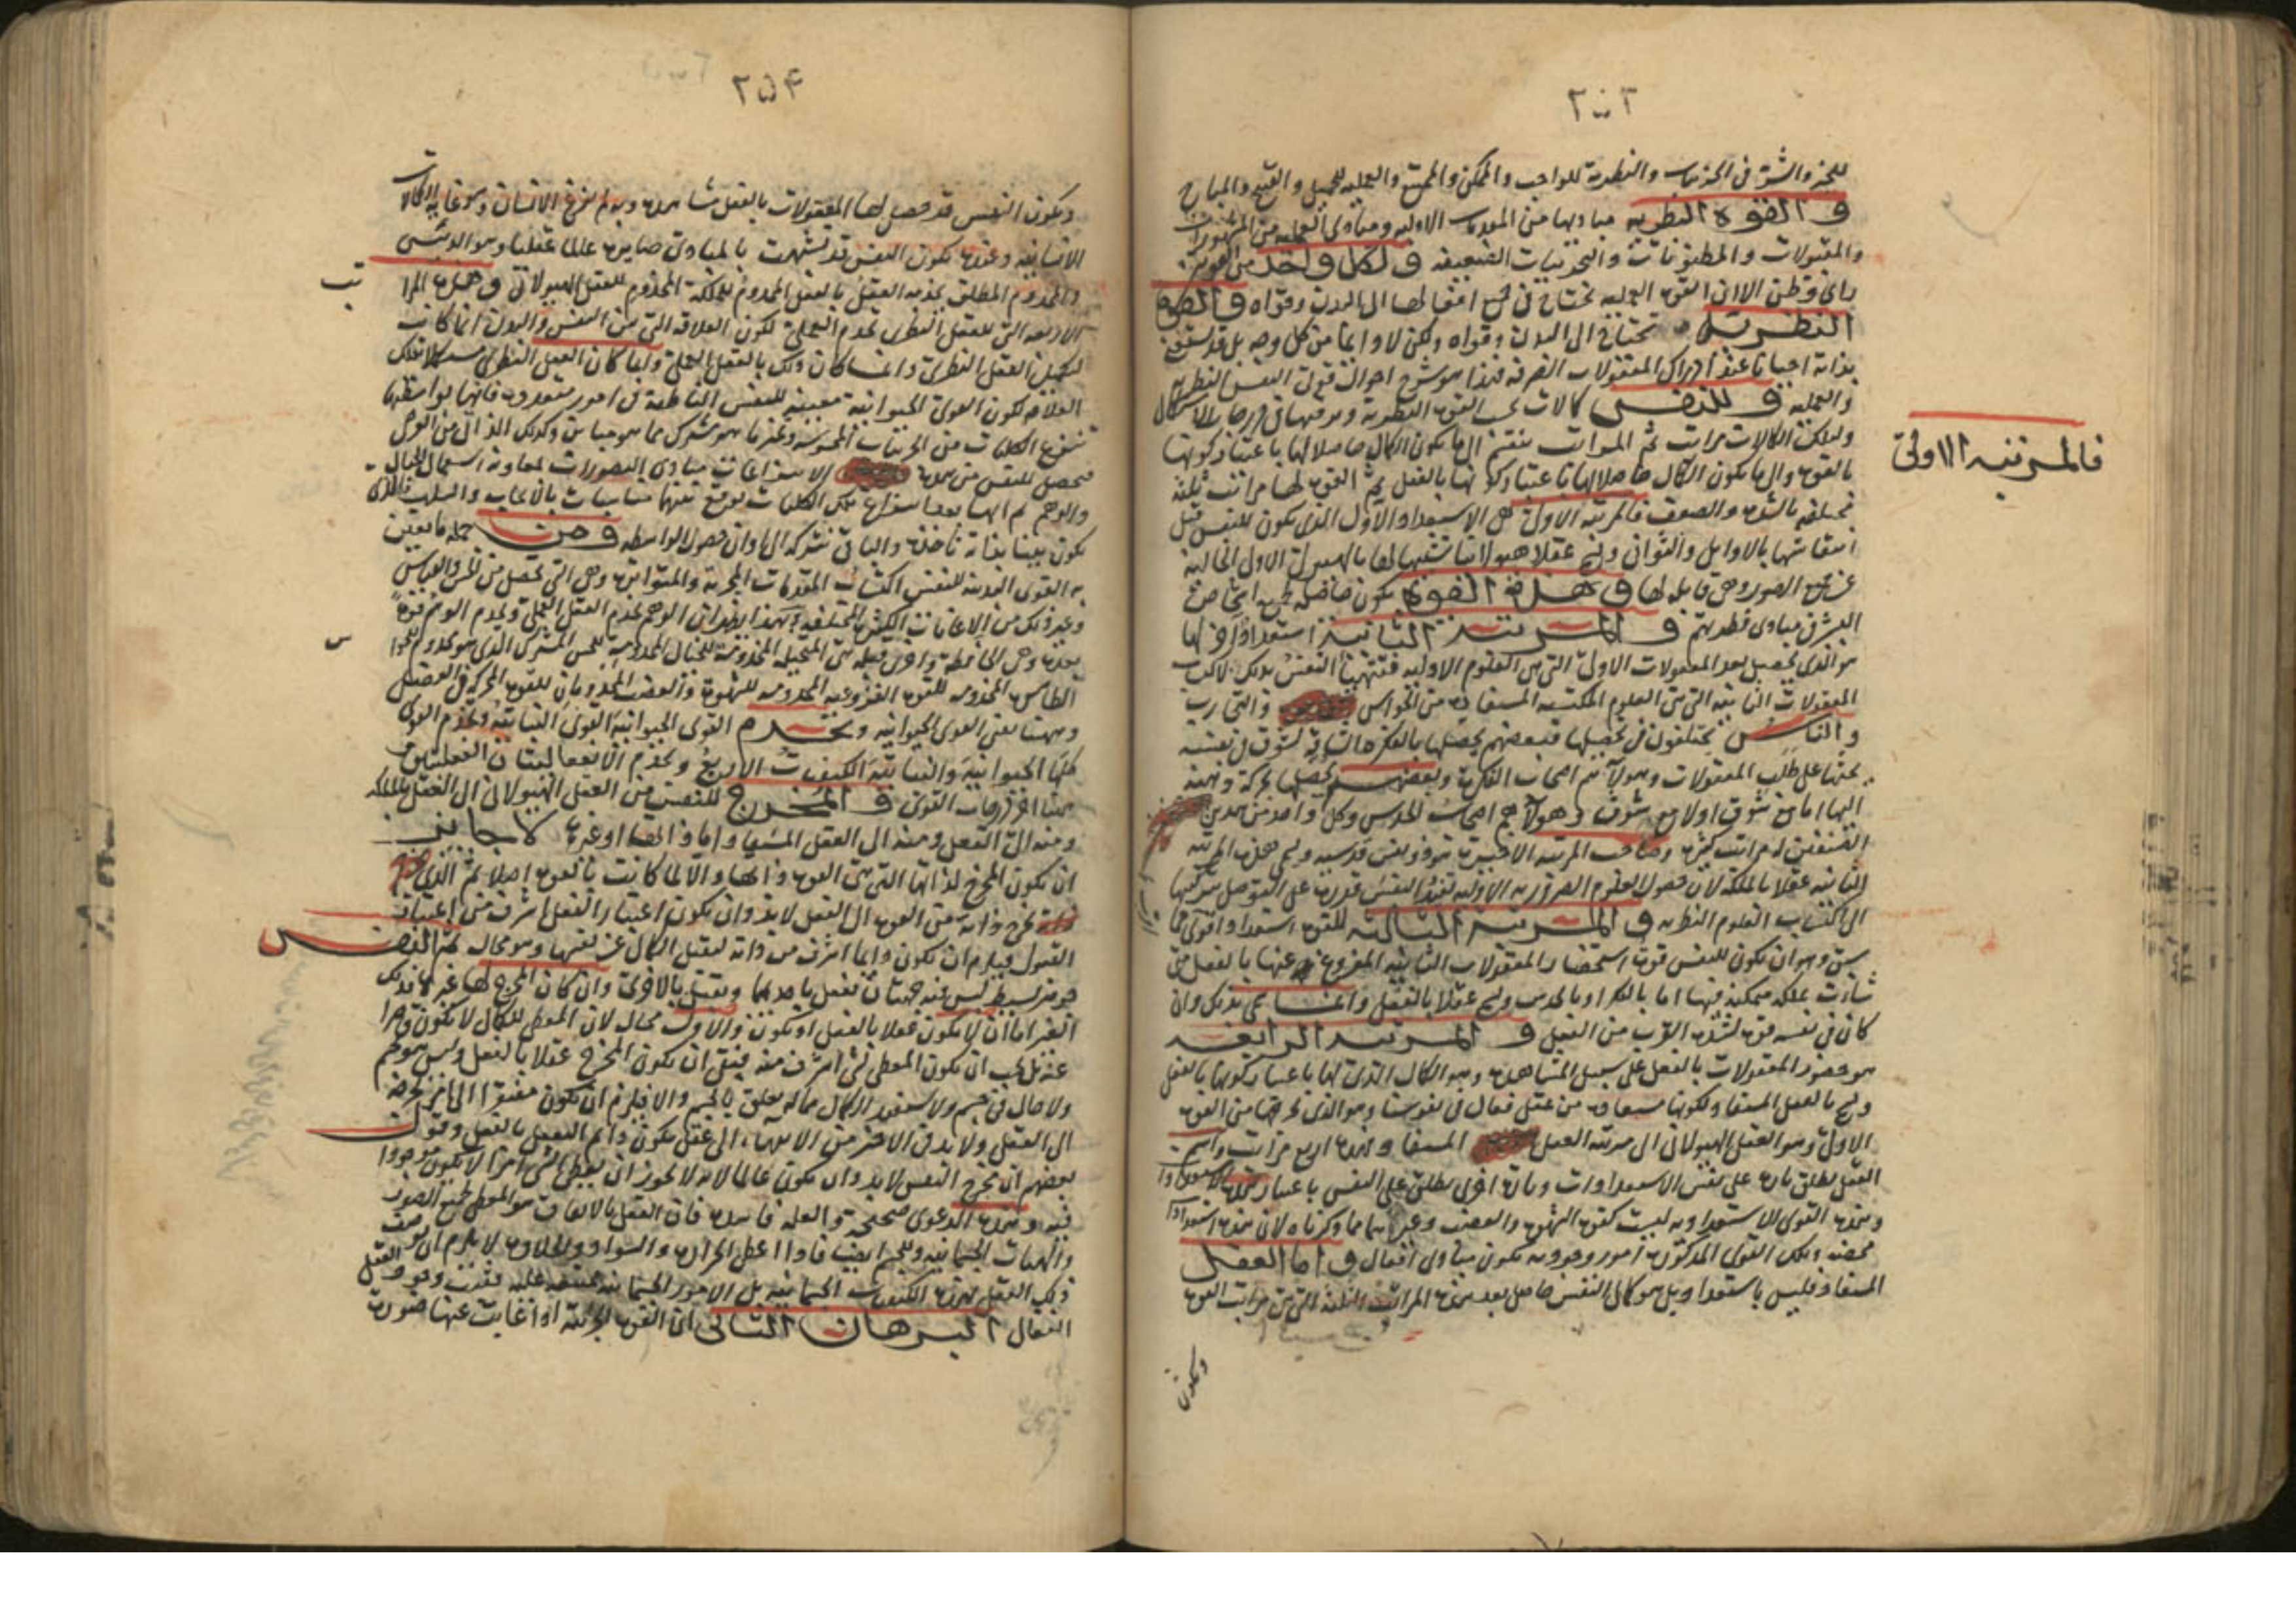 ٢٥٣
للخير والشر في الجزئيات والنظرية للواجب والممكن والممتنع والعملية للجميل والقبيح والمباح
والقوة النظرية مباديها من المقدمات الاولية ومبادى العملية من المشهورات
والمقبولات والمظنونات والتجربيات الضعيفة ولكل واحد من القوتين
راى وظن الا ان القوة العملية تحتاج في جميع افعالها الى البدن وقواه والقوة
النظرية تحتاج الى البدن وقواه ولكن لا دائما من كل وجه بل قد تستغنى
بذاته احيانا عند ادراك المعقولات الصرفة فهذا هو شرح احوال قوتى النفس النظرية
والعملية وللنفس كمالات بحسب القوة النظرية
ولتلك الكمالات مراتب ثم المراتب تنقسم الى ما يكون الكمال حاصلا لها باعتبار كونها
بالقوة والى ما يكون الكمال حاصلا لها باعتبار كونها بالفعل ثم القوة لها مراتب ثلثة
مختلفة بالشدة والضعف فالمرتبة الاولى هي الاستعداد الاول الذى يكون للنفس قبل
انتقاشها بالاوايل والثوانى وتسمى عقلا هيولانيا تشبيها لها بالهيولى الاولى الخالية
عن جميع الصور وهى قابلة لها وهذه القوة يكون حاصلة لجميع اشخاص
البشر في مبادى فطرتهم والمرتبة الثانية استعداد آخر لها
هو الذى يحصل بعد المعقولات الاولى التى هى العلوم الاولية فتتهيأ النفس بذلك لاكتساب
المعقولات الثانية التى هى العلوم المكتسبة المستفادة من الحواس والتجارب
والناس يختلفون في تحصيلها فبعضهم يحصلها بالفكر لشوق في نفسه
يحثها على طلب المعقولات وهؤلآء هم اصحاب الفكرية وبعضهم يحصلها بحركة ذهنية
اليها اما مع شوق او لا مع شوق وهولآء هم اصحاب الحدس وكل واحد من هذين
الصنفين له مراتب كثيرة وصاحب المرتبة الاخيرة هو ذو نفس قدسية وتسمى هذه المرتبة
الثانية عقلا بالملكة لان حصول العلوم الضرورية الاولية تفيد النفس قدرة على التوصل بتركيبها
الى اكتساب العلوم النظرية والمرتبة الثالثة للقوة استعداد اقوى مما
سبق وهو ان تكون للنفس قوة استحضار المعقولات الثانية المفروغ عنها بالفعل متى
شاءت بملكة متمكنة فيها اما بالفكر او بالحدس وتسمى عقلا بالفعل وانما سمى بذلك وان
كان في نفسه قوة لشدة القرب من الفعل والمرتبة الرابعة
هو حضور المعقولات بالفعل على سبيل المشاهدة وهو الكمال الذى لها باعتبار كونها بالفعل
وتسمى بالعقل المستفاد لكونها مستفادة من عقل فعال في نفوسنا وهو الذى يخرجها من القوة
الاولى وهو العقل الهيولانى الى مرتبة العقل المستفاد وهذه اربع مراتب واسم
العقل يطلق تارة على نفس الاستعدادات وتارة اخرى يطلق على النفس باعتبار
وهذه القوى الاستعدادية ليست كقوة الشهوة والغضب وغيرهما مما ذكرناه لان هذه استعدادات
محضة وتلك القوى المذكورة امور وجودية تكون مبادى افعال واما العقل
المستفاد فليس باستعداد بل هو كمال النفس حاصل بعد هذه المراتب الثلثة التى هى مراتب القوة
وتكون
فالمرتبة الاولى
٢٥۴
وتكون النفس قد حصل لها المعقولات بالفعل مشاهدة وبها يتم نوع الانسان وهو غاية الكمالات
الانسانية وعندها تكون النفس قد تشبهت بالمبادى صايرة عالما عقليا وهو الرئيس
والمخدوم المطلق يخدمه العقل بالفعل المخدوم للملكة المخدوم للعقل الهيولانى وجميع المراتب
الاربعة التى للعقل النظرى يخدمه العملى لكون العلاقة التى بين النفس والبدن انما كانت
لتكميل العقل النظرى وانما كان ذلك بالعقل العملى
العلاقة لكون القوى الحيوانية معينة للنفس الناطقة في امور متعددة فانها بواسطتها
تنتزع الكليات من الجزئيات المحسوسة
فتحصل للنفس من هذه الانتزاعات مبادى التصورات بمعاونة استعمال الخيال
والوهم ثم انها بعد انتزاع تلك الكليات توقع بينها مناسبات بالايجاب والسلب فالذى
يكون بينا بذاته تأخذه والباقى تتركه الى اوان حصول الواسطة ومن جملة ما تعين
به القوى البدنية للنفس اكتساب المقدمات المجربة والمتواترة وهى التى تحصل من الحس والقياس
وغير ذلك من الاعانات الكثيرة المختلفة فبهذا يظهر ان الوهم يخدم العقل العملى ويخدم الوهم قوة
بعده وهى الحافظة واخرى قبله هى المتخيلة المخدومة للخيال المخدومة للحس المشترك الذى هو مخدوم للحواس
الظاهرة المخدومة للقوة النزوعية المخدومة للشهوة والغضب المخدومان للقوة المحركة في العضل
وههنا تفنى القوى الحيوانية وتخدم القوى الحيوانية القوى النباتية وتخدم القوى
كلها الحيوانية والنباتية الكيفيات الاربع ويخدم الانفعاليتان الفعليتين
هذا اخر درجات القوى والمخرج للنفس من العقل الهيولانى الى العقل بالملكة
ومنه الى الفعل ومنه الى العقل المستفاد اما ذاتها او غيرها لا جايز
ان يكون المخرج لذاتها التى هى القوة ذاتها والا لما كانت بالقوة اصلا ثم الذى
يخرج ذاته من القوة الى الفعل لابد وان يكون اعتبار الفعل اشرف من اعتبار
القبول فيلزم ان يكون ذاتها اشرف من ذاته لتقبل الكمال عن نفسها وهو محال ثم النفس
جوهر بسيط ليس فيه جهتان تفعل باحديهما وتقبل بالاخرى وان كان المخرج لها غيرها فذلك
الغير اما ان لا يكون عقلا بالفعل او يكون والاول محال لان المعطى للكمال لا يكون قاصرا
عنه بل يجب ان يكون المعطى للشى اشرف منه فبقى ان يكون المخرج عقلا بالفعل وليس هو جسم
ولا حال في جسم ولا يستفيد الكمال مما له تعلق بالجسم والا فيلزم ان يكون مفتقرا الى اخر يخرجه
الى العقل ولابد في الاخر من الانتهاء الى عقل يكون دائم التعقل بالفعل وقول
بعضهم ان مخرج النفس لابد وان يكون عالما لانه لا يجوز ان يعطى الشى امرا لا يكون موجودا
فيه وهذه الدعوى صحيحة والعلة فاسدة فان العقل بالاتفاق هو المعطى لجميع الصور
والهيئات الجسمانية وللجسم ايضا فاذا اعطى الحرارة والسواد والحلاوة لا يلزم ان يوصف
ذلك العقل بهذه الكيفيات الجسمانية بل الامور الجسمانية ممتنعة عليه فقد ثبت وجود العقل
الفعال البرهان الثانى ان القوة الجزئية اذا غابت عنها صورة